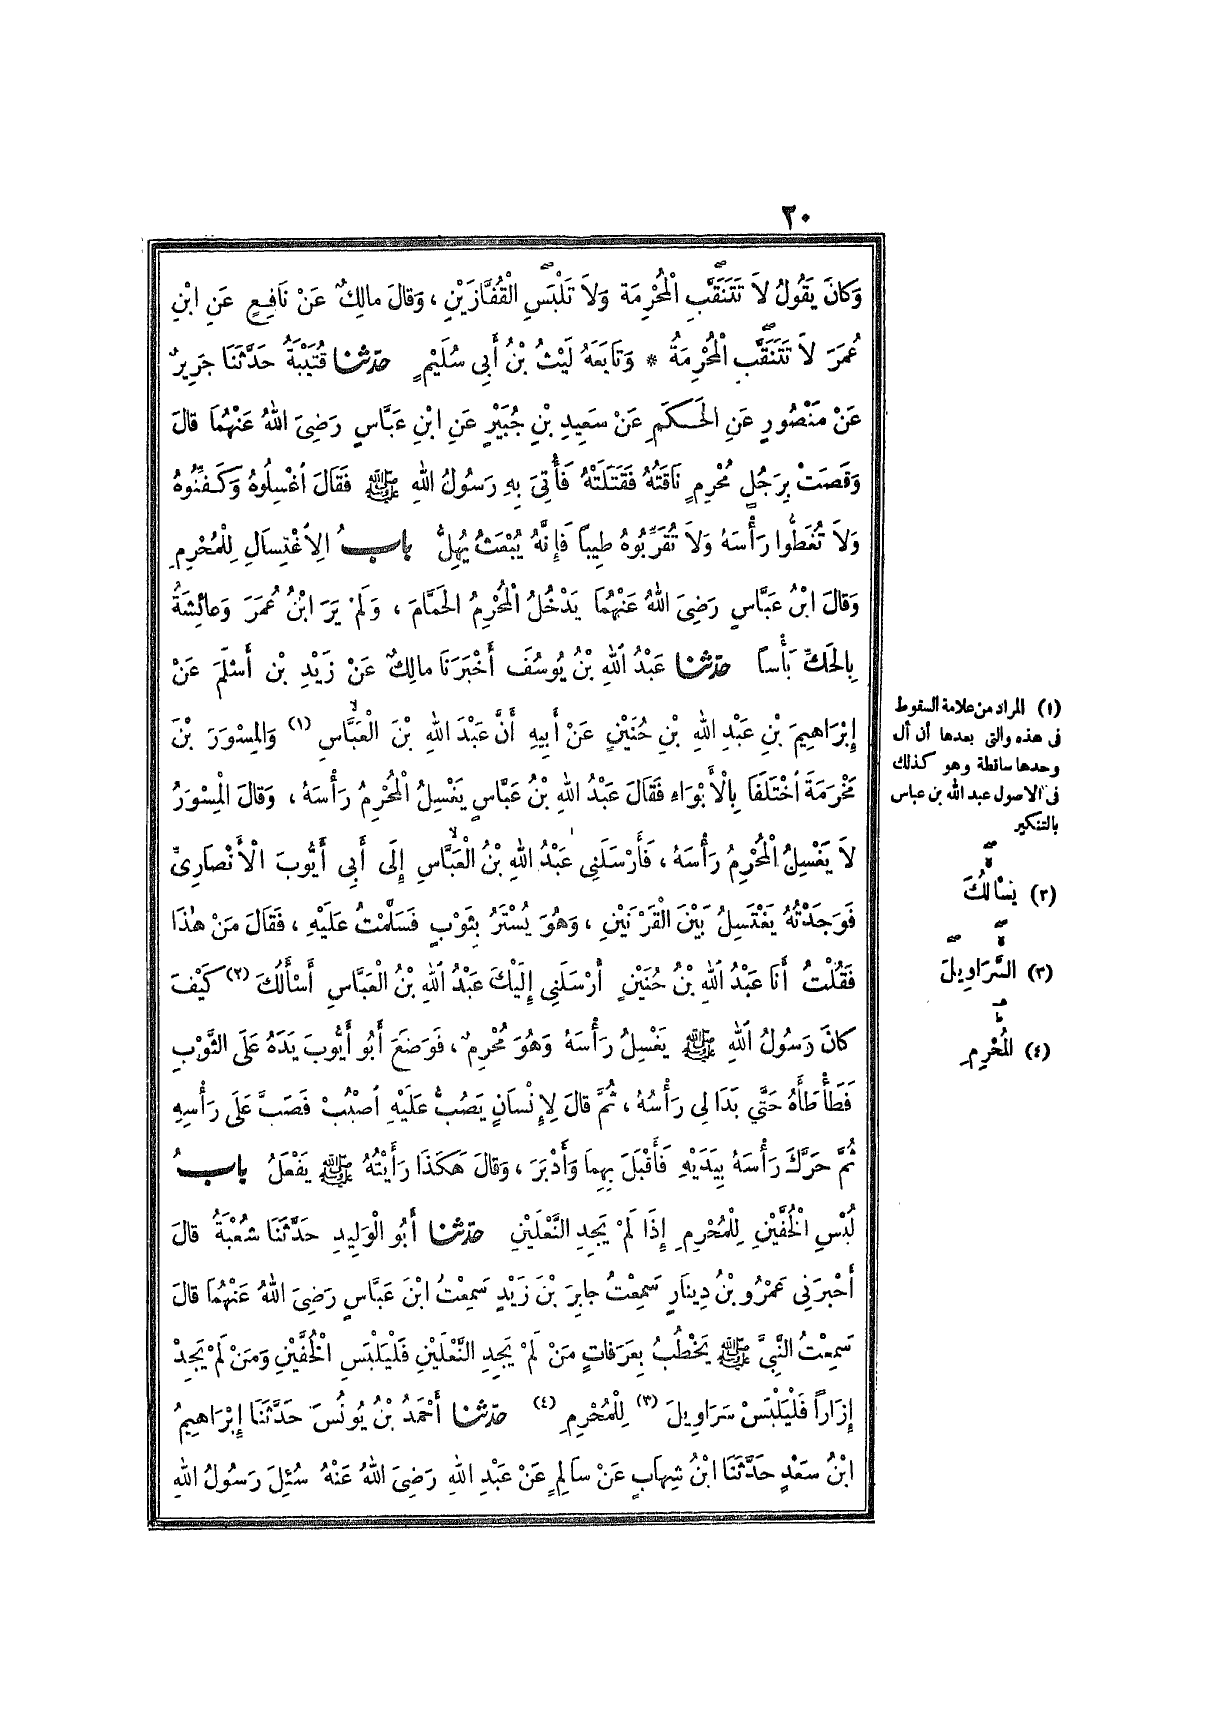 ٢٠
وَكانَ يَقُولُ لاَ تَتَنَقَّبِ الْمُحْرِمَة وَلاَ تَلْبَسِ الْقُفَّازَيْنِ ، وَقالَ مالِكٌ عَنْ نَافِعٍ عَنِ ابْنِ
عُمَرَ لاَ تَتَنَقَّبِ الْمُحْرِمَةُ * وَتَابَعَهُ لَيْثُ بْنُ أَبِى سُلَيْمٍ حَدَّثَنَا قُتَيْبَةُ حَدَّثَنَا جَرِيرٌ
عَنْ مَنْصُورٍ عَنِ الحَكَمِ عَنْ سَعِيدِ بْنِ جُبَيْرٍ عَنِ ابْنِ عَبَّاسٍ رَضِىَ اللهُ عَنْهُمَا قالَ
وَقَصَتْ بِرَجُلٍ مُحْرِمٍ نَاقَتُهُ فَقَتَلَتْهُ فَأُتِىَ بِهِ رَسُولُ اللهِ ﷺ فَقَالَ اغْسِلُوهُ وَكَفِّنُوهُ
وَلاَ تُغَطُّوا رَأْسَهُ وَلاَ تُقَرِّبُوهُ طِيباً فَإِنَّهُ يُبْعَثُ يُهِلُّ بابُ الاِغْتِسَالِ لِلْمُحْرِمِ
وَقالَ ابْنُ عَبَّاسٍ رَضِىَ اللهُ عَنْهُمَا يَدْخُلُ الْمُحْرِمُ الحَمَّامَ ، وَلَمْ يَرَ ابْنُ عُمَرَ وَعائِشَةُ
بِالحَكِّ بَأْساً حَدَّثَنَا عَبْدُ اللهِ بْنُ يُوسُفَ أَخْبَرَنَا مالِكٌ عَنْ زَيْدِ بْنِ أَسْلَمَ عَنْ
إِبْرَاهِيمَ بْنِ عَبْدِ اللهِ بْنِ حُنَيْنٍ عَنْ أَبِيهِ أَنَّ عَبْدَ اللهِ بْنَ الْعَبَّاسِ (١) وَالمِسْوَرَ بْنَ
مَخْرَمَةَ اخْتَلَفَا بِالْأَبْوَاءِ فَقَالَ عَبْدُ اللهِ بْنُ عَبَّاسٍ يَغْسِلُ الْمُحْرِمُ رَأْسَهُ ، وَقالَ الْمِسْوَرُ
لاَ يَغْسِلُ الْمُحْرِمُ رَأْسَهُ ، فَأَرْسَلَنِى عَبْدُ اللهِ بْنُ الْعَبَّاسِ إِلَى أَبِى أَيُّوبَ الْأَنْصَارِىِّ
فَوَجَدْتُهُ يَغْتَسِلُ بَيْنَ الْقَرْنَيْنِ ، وَهُوَ يُسْتَرُ بِثَوْبٍ فَسَلَّمْتُ عَلَيْهِ ، فَقَالَ مَنْ هٰذَا
فَقُلْتُ أَنَا عَبْدُ اللهِ بْنُ حُنَيْنٍ أَرْسَلَنِى إِلَيْكَ عَبْدُ اللهِ بْنُ الْعَبَّاسِ أَسْأَلُكَ (٢) كَيْفَ
كانَ رَسُولُ اللهِ ﷺ يَغْسِلُ رَأْسَهُ وَهُوَ مُحْرِمٌ ، فَوَضَعَ أَبُو أَيُّوبَ يَدَهُ عَلَى الثَّوْبِ
فَطَأْطَأَهُ حَتَّى بَدَا لِى رَأْسُهُ ، ثُمَّ قالَ لِإِنْسَانٍ يَصُبُّ عَلَيْهِ اصْبُبْ فَصَبَّ عَلَى رَأْسِهِ
ثُمَّ حَرَّكَ رَأْسَهُ بِيَدَيْهِ فَأَقْبَلَ بِهِمَا وَأَدْبَرَ ، وَقالَ هَكَذَا رَأَيْتُهُ ﷺ يَفْعَلُ بابُ
لُبْسِ الْخُفَّيْنِ لِلْمُحْرِمِ إِذَا لَمْ يَجِدِ النَّعْلَيْنِ حَدَّثَنَا أَبُو الْوَلِيدِ حَدَّثَنَا شُعْبَةُ قالَ
أَخْبَرَنِى عَمْرُو بْنُ دِينَارٍ سَمِعْتُ جابِرَ بْنَ زَيْدٍ سَمِعْتُ ابْنَ عَبَّاسٍ رَضِىَ اللهُ عَنْهُمَا قالَ
سَمِعْتُ النَّبِىَّ ﷺ يَخْطُبُ بِعَرَفاتٍ مَنْ لَمْ يَجِدِ النَّعْلَيْنِ فَلْيَلْبَسِ الْخُفَّيْنِ وَمَنْ لَمْ يَجِدْ
إِزَاراً فَلْيَلْبَسْ سَرَاوِيلَ (٣) لِلْمُحْرِمِ (٤) حَدَّثَنَا أَحْمَدُ بْنُ يُونُسَ حَدَّثَنَا إِبْرَاهِيمُ
ابْنُ سَعْدٍ حَدَّثَنَا ابْنُ شِهَابٍ عَنْ سَالِمٍ عَنْ عَبْدِ اللهِ رَضِىَ اللهُ عَنْهُ سُئِلَ رَسُولُ اللهِ
(١) المراد من علامة السقوط
فى هذه والتى بعدها أن أل
وحدها ساقطة وهو كذلك
فى الاصول عبد الله بن عباس
بالتنكير
(٢) يَسْأَلُكَ
(٣) السَّرَاوِيلَ
(٤) الْمُحْرِمِ